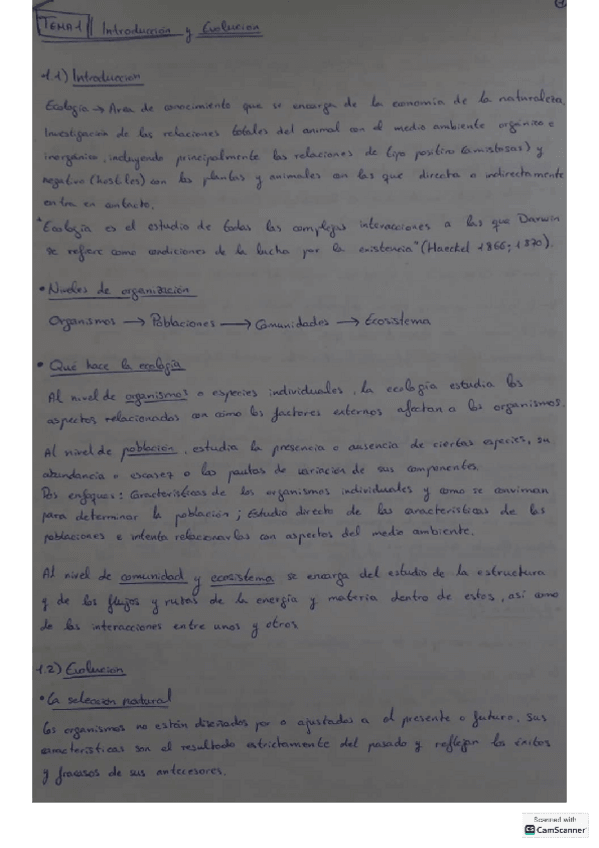 TEMA 1 Introducción y Evolución
1.1) Introducción
Ecología → Area de conocimiento que se encarga de la economía de la naturaleza,
Investigación de las relaciones totales del animal con el medio ambiente orgánico e
inorgánico, incluyendo principalmente las relaciones de tipo positivo (amistosas) y
negativo (hostiles) con las plantas y animales con los que directa o indirectamente
entra en contacto.
"Ecología es el estudio de todas las complejas interacciones a las que Darwin
se refiere como condiciones de la lucha por la existencia" (Haeckel 1866; 1870).
• Niveles de organización
Organismos → Poblaciones → Comunidades → Ecosistema
• Qué hace la ecología
Al nivel de organismos o especies individuales, la ecología estudia los
aspectos relacionados con cómo los factores externos afectan a los organismos.
Al nivel de población, estudia la presencia o ausencia de ciertas especies, su
abundancia o escasez o las pautas de variación de sus componentes.
Dos enfoques: Características de los organismos individuales y como se conviman
para determinar la población; Estudio directo de las características de las
poblaciones e intenta relacionarlas con aspectos del medio ambiente.
Al nivel de comunidad y ecosistema se encarga del estudio de la estructura
y de los flujos y rutas de la energía y materia dentro de estos, así como
de las interacciones entre unos y otros
1.2) Evolución
• La selección natural
Los organismos no están diseñados por o ajustados a el presente o futuro, sus
características son el resultado estrictamente del pasado y reflejan los éxitos
y fracasos de sus antecesores.
Scanned with
CS CamScanner